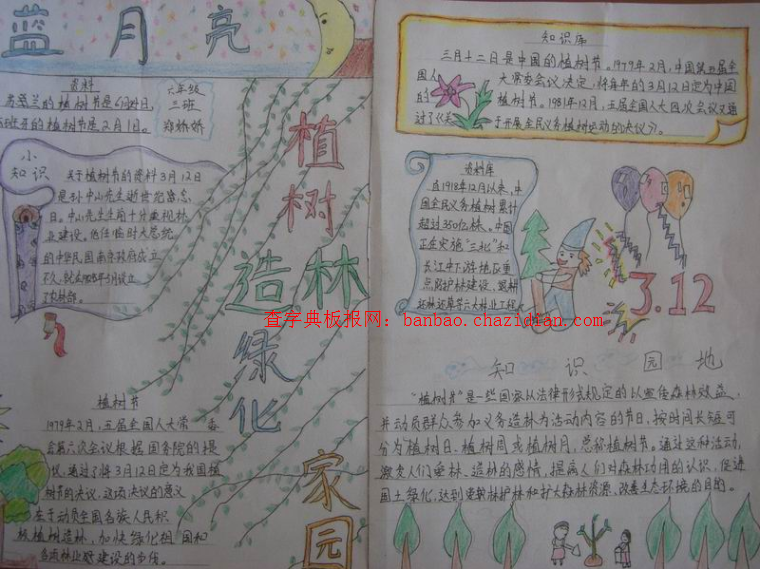 蓝月亮
资料
的植树节是6月21日
的植树节是2月1日。
六年级
三班
小
知识
关于植树节的资料3月12日
是孙中山先生逝世纪念
日。中山先生生前十分重视林
业建设。他任临时大总统
的中华民国南京政府成立
不久,就在1912年5月设立
了农林部。
植树造林
绿化家园
植树节
1979年2月,五届全国人大常委
会第六次会议根据国务院的提
议,通过了将3月12日定为我国植
树节的决议,这项决议的意义
在于动员全国各族人民积
极植树造林,加快绿化祖国和
各项林业建设的步伐。
知识库
三月十二日是中国的植树节。1979年2月,中国第五届全
国人大常委会议决定,将每年的3月12日定为中国
的植树节。1981年12月,五届全国人大四次会议又通
过了《关于开展全民义务植树运动的决议》。
资料库
自1981年12月以来,中
国全民义务植树累计
超过350亿株。中国
正在实施"三北"和
长江中下游地区重
点防护林建设、退耕
还林还草等六大林业工程
3.12
查字典板报网:banbao.chazidian.com
知识园地
"植树节"是一些国家以法律形式规定的以宣传森林效益,
并动员群众参加义务造林为活动内容的节日,按时间长短可
分为植树日、植树周或植树月,总称植树节。通过这种活动,
激发人们爱林、造林的感情,提高人们对森林功用的认识,促进
国土绿化,达到爱林护林和扩大森林资源、改善生态环境的目的。